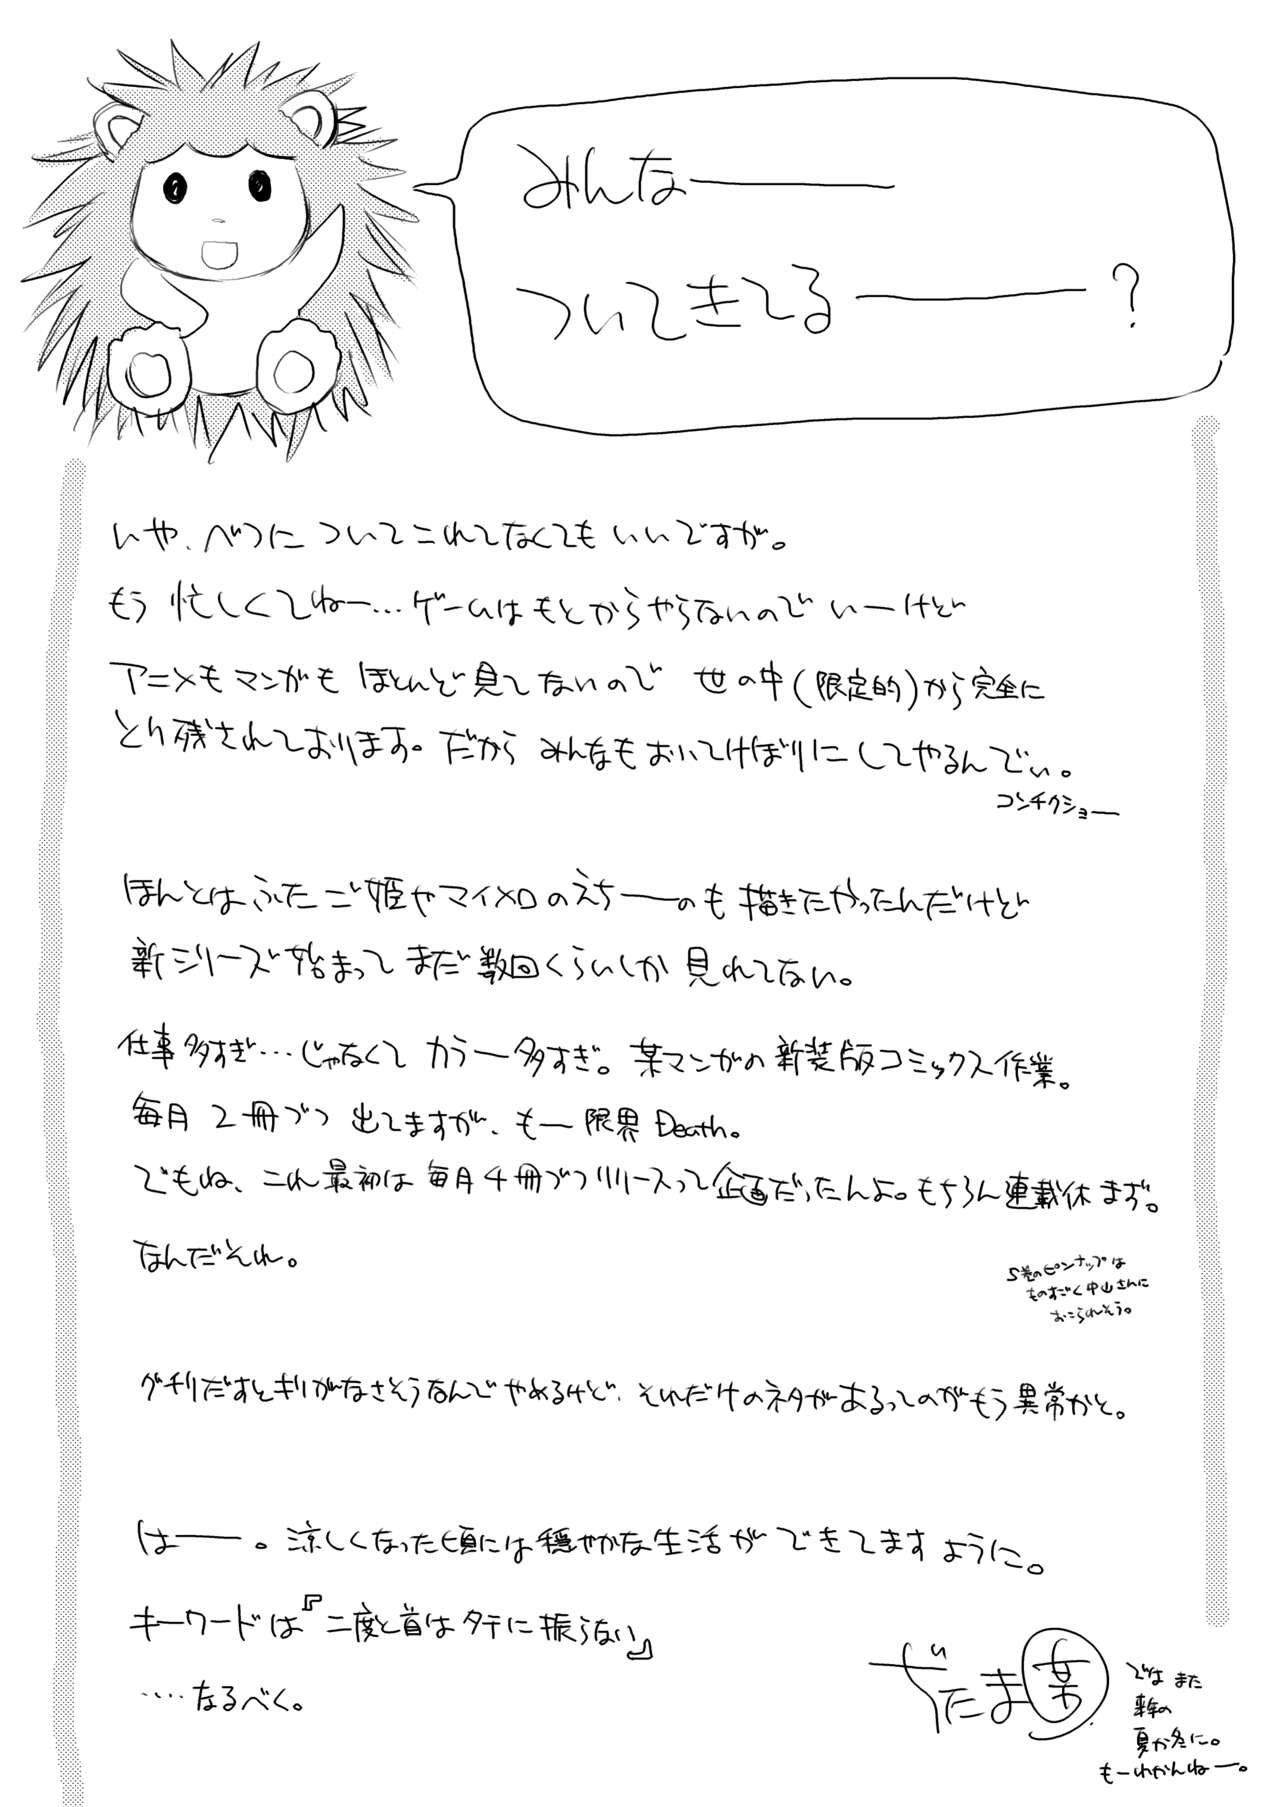 みんなーーー
ついてきてるーーー？
いや、べつについてこれてなくてもいいですが。
もう忙しくてねー…ゲームはもとからやらないのでいーけど
アニメもマンガもほとんど見てないので 世の中(限定的)から完全に
とり残されております。だからみんなもおいてけぼりにしてやるんでぃ。
コンチクショー
ほんとはふたご姫やマイメロのえちーのも描きたかったんだけど
新シリーズ始まってまだ数回くらいしか見れてない。
仕事多すぎ…じゃなくてカラー多すぎ。某マンガの新装版コミックス作業。
毎月2冊づつ出てますが、もー限界Death。
でもね、これ最初は毎月4冊づつリリースって企画だったんよ。もちろん連載休まず。
なんだそれ。
5巻のピンナップは
ものすごく中山さんに
おこられそう。
グチりだすとキリがなさそうなんでやめるけど、それだけのネタがあるってのがもう異常かと。
はーー。涼しくなった頃には穏やかな生活ができてますように。
キーワードは『二度と首はタテに振らない』
‥‥なるべく。
ぢたま㊛
ではまた
来年の
夏か冬に。
もーわかんねー。